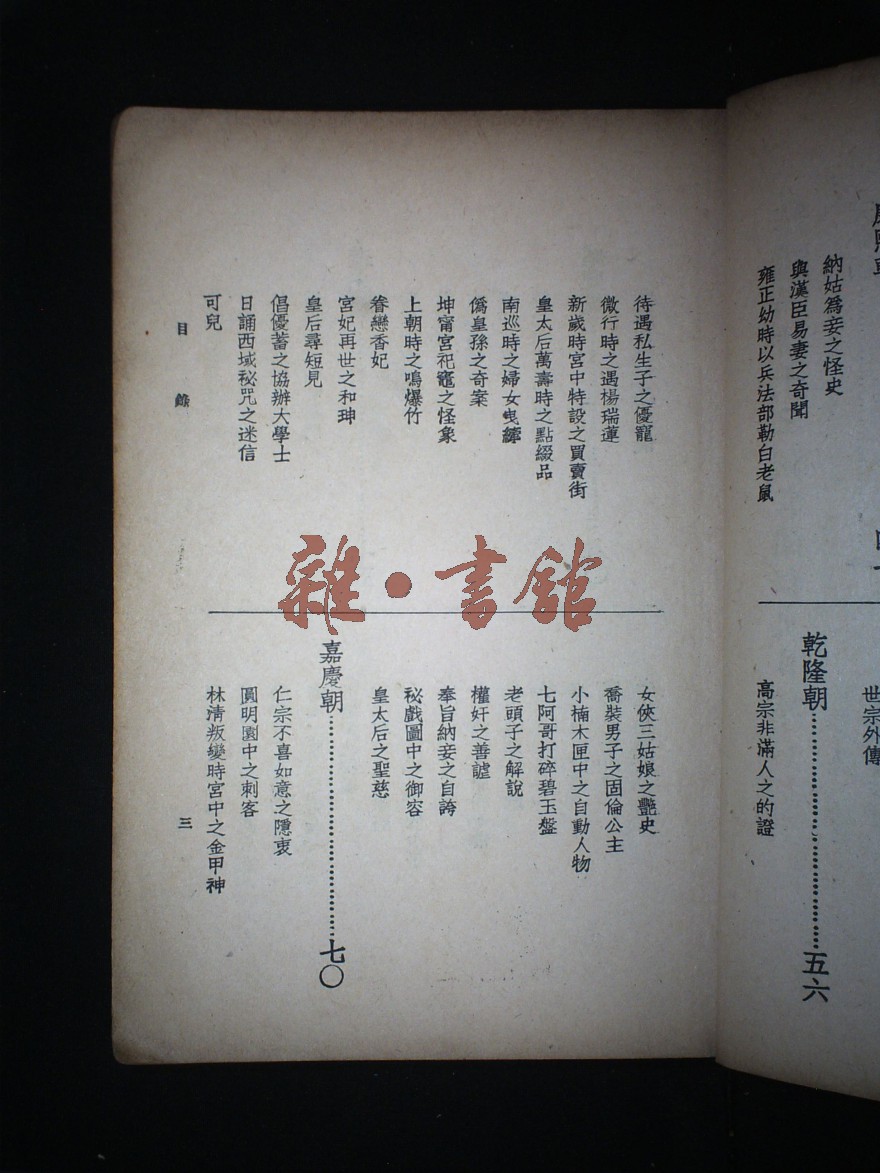 納姑爲妾之怪史
與漢臣易妻之奇聞
雍正幼時以兵法部勒白老鼠
世宗外傳
乾隆朝……五六
高宗非滿人之的證
待遇私生子之優寵
微行時之遇楊瑞蓮
新歲時宮中特設之買賣街
皇太后萬壽時之點綴品
南巡時之婦女曳縴
僞皇孫之奇案
坤甯宮祀竈之怪象
上朝時之鳴爆竹
眷戀香妃
宮妃再世之和珅
皇后尋短見
倡優蓄之協辦大學士
日誦西域秘咒之迷信
可兒
女俠三姑娘之艷史
喬裝男子之固倫公主
小楠木匣中之自動人物
七阿哥打碎碧玉盤
老頭子之解說
權奸之善謔
奉旨納妾之自誇
秘戲圖中之御容
皇太后之聖慈
嘉慶朝……七〇
仁宗不喜如意之隱衷
圓明園中之刺客
林淸叛變時宮中之金甲神
目錄
三
雜·書館